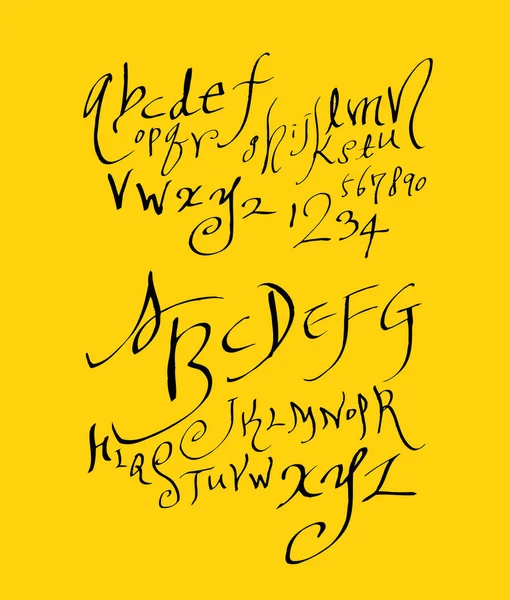 abcdef
ghijklmn
opqr
stu
vwxyz
567890
1234
ABCDEFG
HI
JKLMNOPR
QS
TUVWXYZ